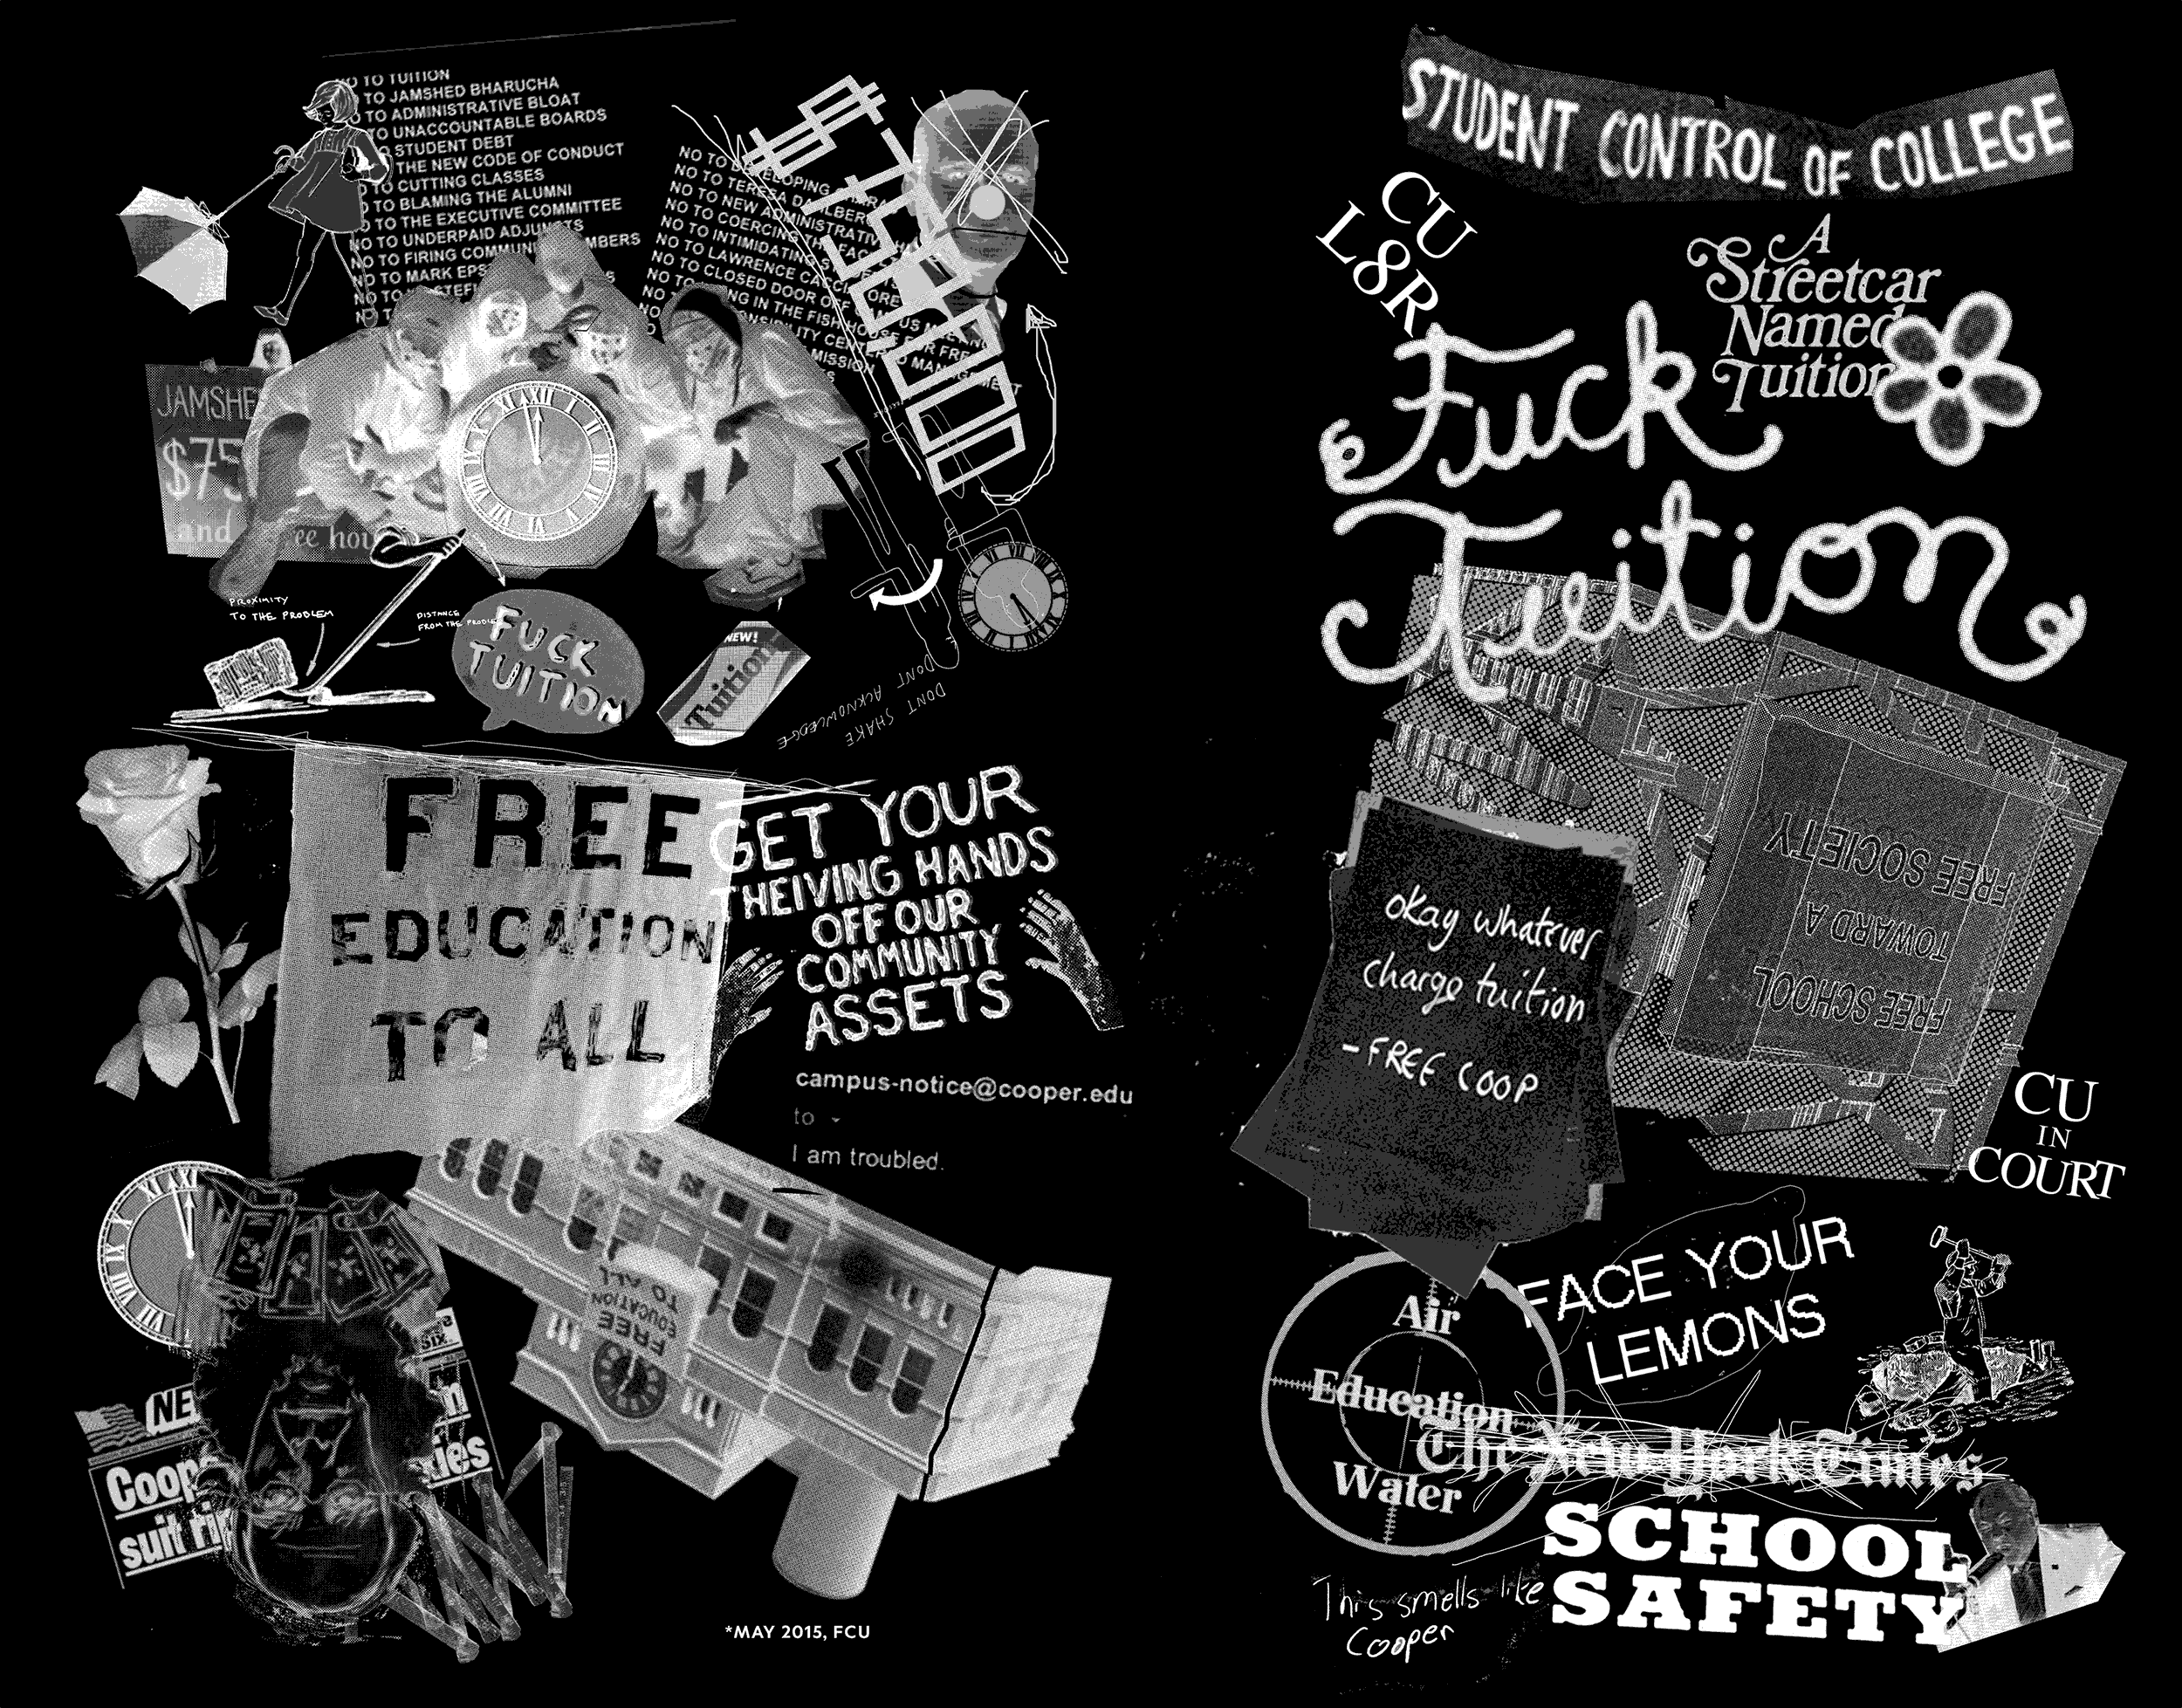 NO TO TUITION
TO JAMSHED BHARUCHA
TO ADMINISTRATIVE BLOAT
TO UNACCOUNTABLE BOARDS
STUDENT DEBT
THE NEW CODE OF CONDUCT
TO CUTTING CLASSES
TO BLAMING THE ALUMNI
NO TO THE EXECUTIVE COMMITTEE
NO TO UNDERPAID ADJUNCTS
NO TO FIRING COMMUNI MBERS
NO TO MARK EPS
NO TO
NO T
NO TO
NO TO TERESA DAHLBER
NO TO NEW ADMINISTRATIV
NO TO COERCING THE FAC
NO TO INTIMIDATING S
NO TO LAWRENCE CACC ORE
NO TO CLOSED DOOR OFF US
NO NG IN THE FISH HOUSE FOR FRE
NO ONSIBILITY CENTE MANAGEMENT
MISSION
JAMSHE
$75
and ee hou
PROXIMITY
TO THE PROBLEM
DISTANCE
FROM THE PROBLE
FUCK
TUITION
NEW!
Tuition
DONT SHAKE
DONT ACKNOWLEDGE
FREE
EDUCATION
TO ALL
GET YOUR
THEIVING HANDS
OFF OUR
COMMUNITY
ASSETS
campus-notice@cooper.edu
to
I am troubled.
FREE
EDUCATION
TO ALL
SIX
NE
Coop
suit ri
ies
*MAY 2015, FCU
STUDENT CONTROL OF COLLEGE
CU
L8R
A
Streetcar
Named
Tuition
Fuck
Tuition
FREE SCHOOL
TOWARD A
FREE SOCIETY
okay whatever
charge tuition
-FREE COOP
CU
IN
COURT
FACE YOUR
LEMONS
Air
Education
Water
The New York Times
SCHOOL
SAFETY
This smells like
Cooper